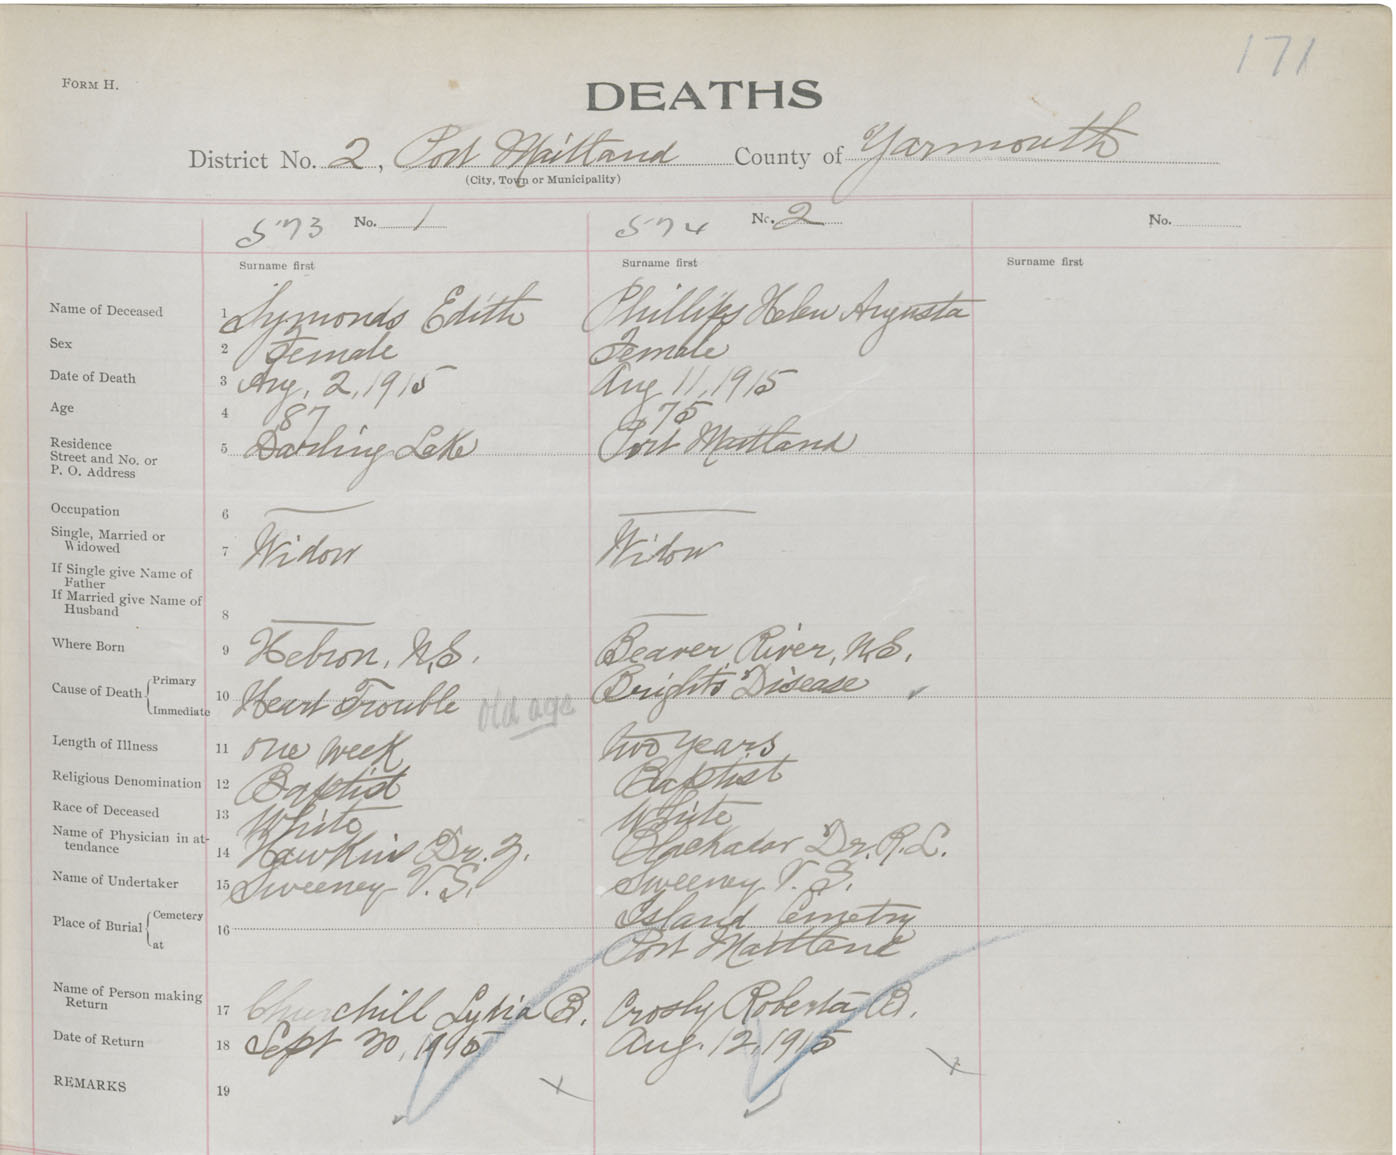 171
FORM H.
DEATHS
District No. 2, Port Maitland County of Yarmouth
(City, Town or Municipality)
573 No. 1 574 No. 2 No.
Surname first Surname first Surname first
Name of Deceased 1 Symonds Edith Phillips Helen Augusta
Sex 2 Female Female
Date of Death 3 Aug, 2, 1915 Aug 11, 1915
Age 4 87 75
Residence
Street and No. or 5 Darling Lake Port Maitland
P. O. Address
Occupation 6
Single, Married or
Widowed 7 Widow Widow
If Single give Name of
Father
If Married give Name of
Husband 8
Where Born 9 Hebron, N.S. Beaver River, N.S.
Cause of Death Primary Brights Disease
Immediate 10 Heart Trouble old age
Length of Illness 11 one week two years
Religious Denomination 12 Baptist Baptist
Race of Deceased 13 White White
Name of Physician in at-
tendance 14 Hawkins Dr. Z. Blackadar Dr. R. L.
Name of Undertaker 15 Sweeney V. S. Sweeney V. S.
Place of Burial Cemetery 16 Island Cemetry
at Port Maitland
Name of Person making
Return 17 Churchill Lydia B. Crosby Roberta B.
Date of Return 18 Sept 30, 1915 Aug. 12, 1915
REMARKS 19